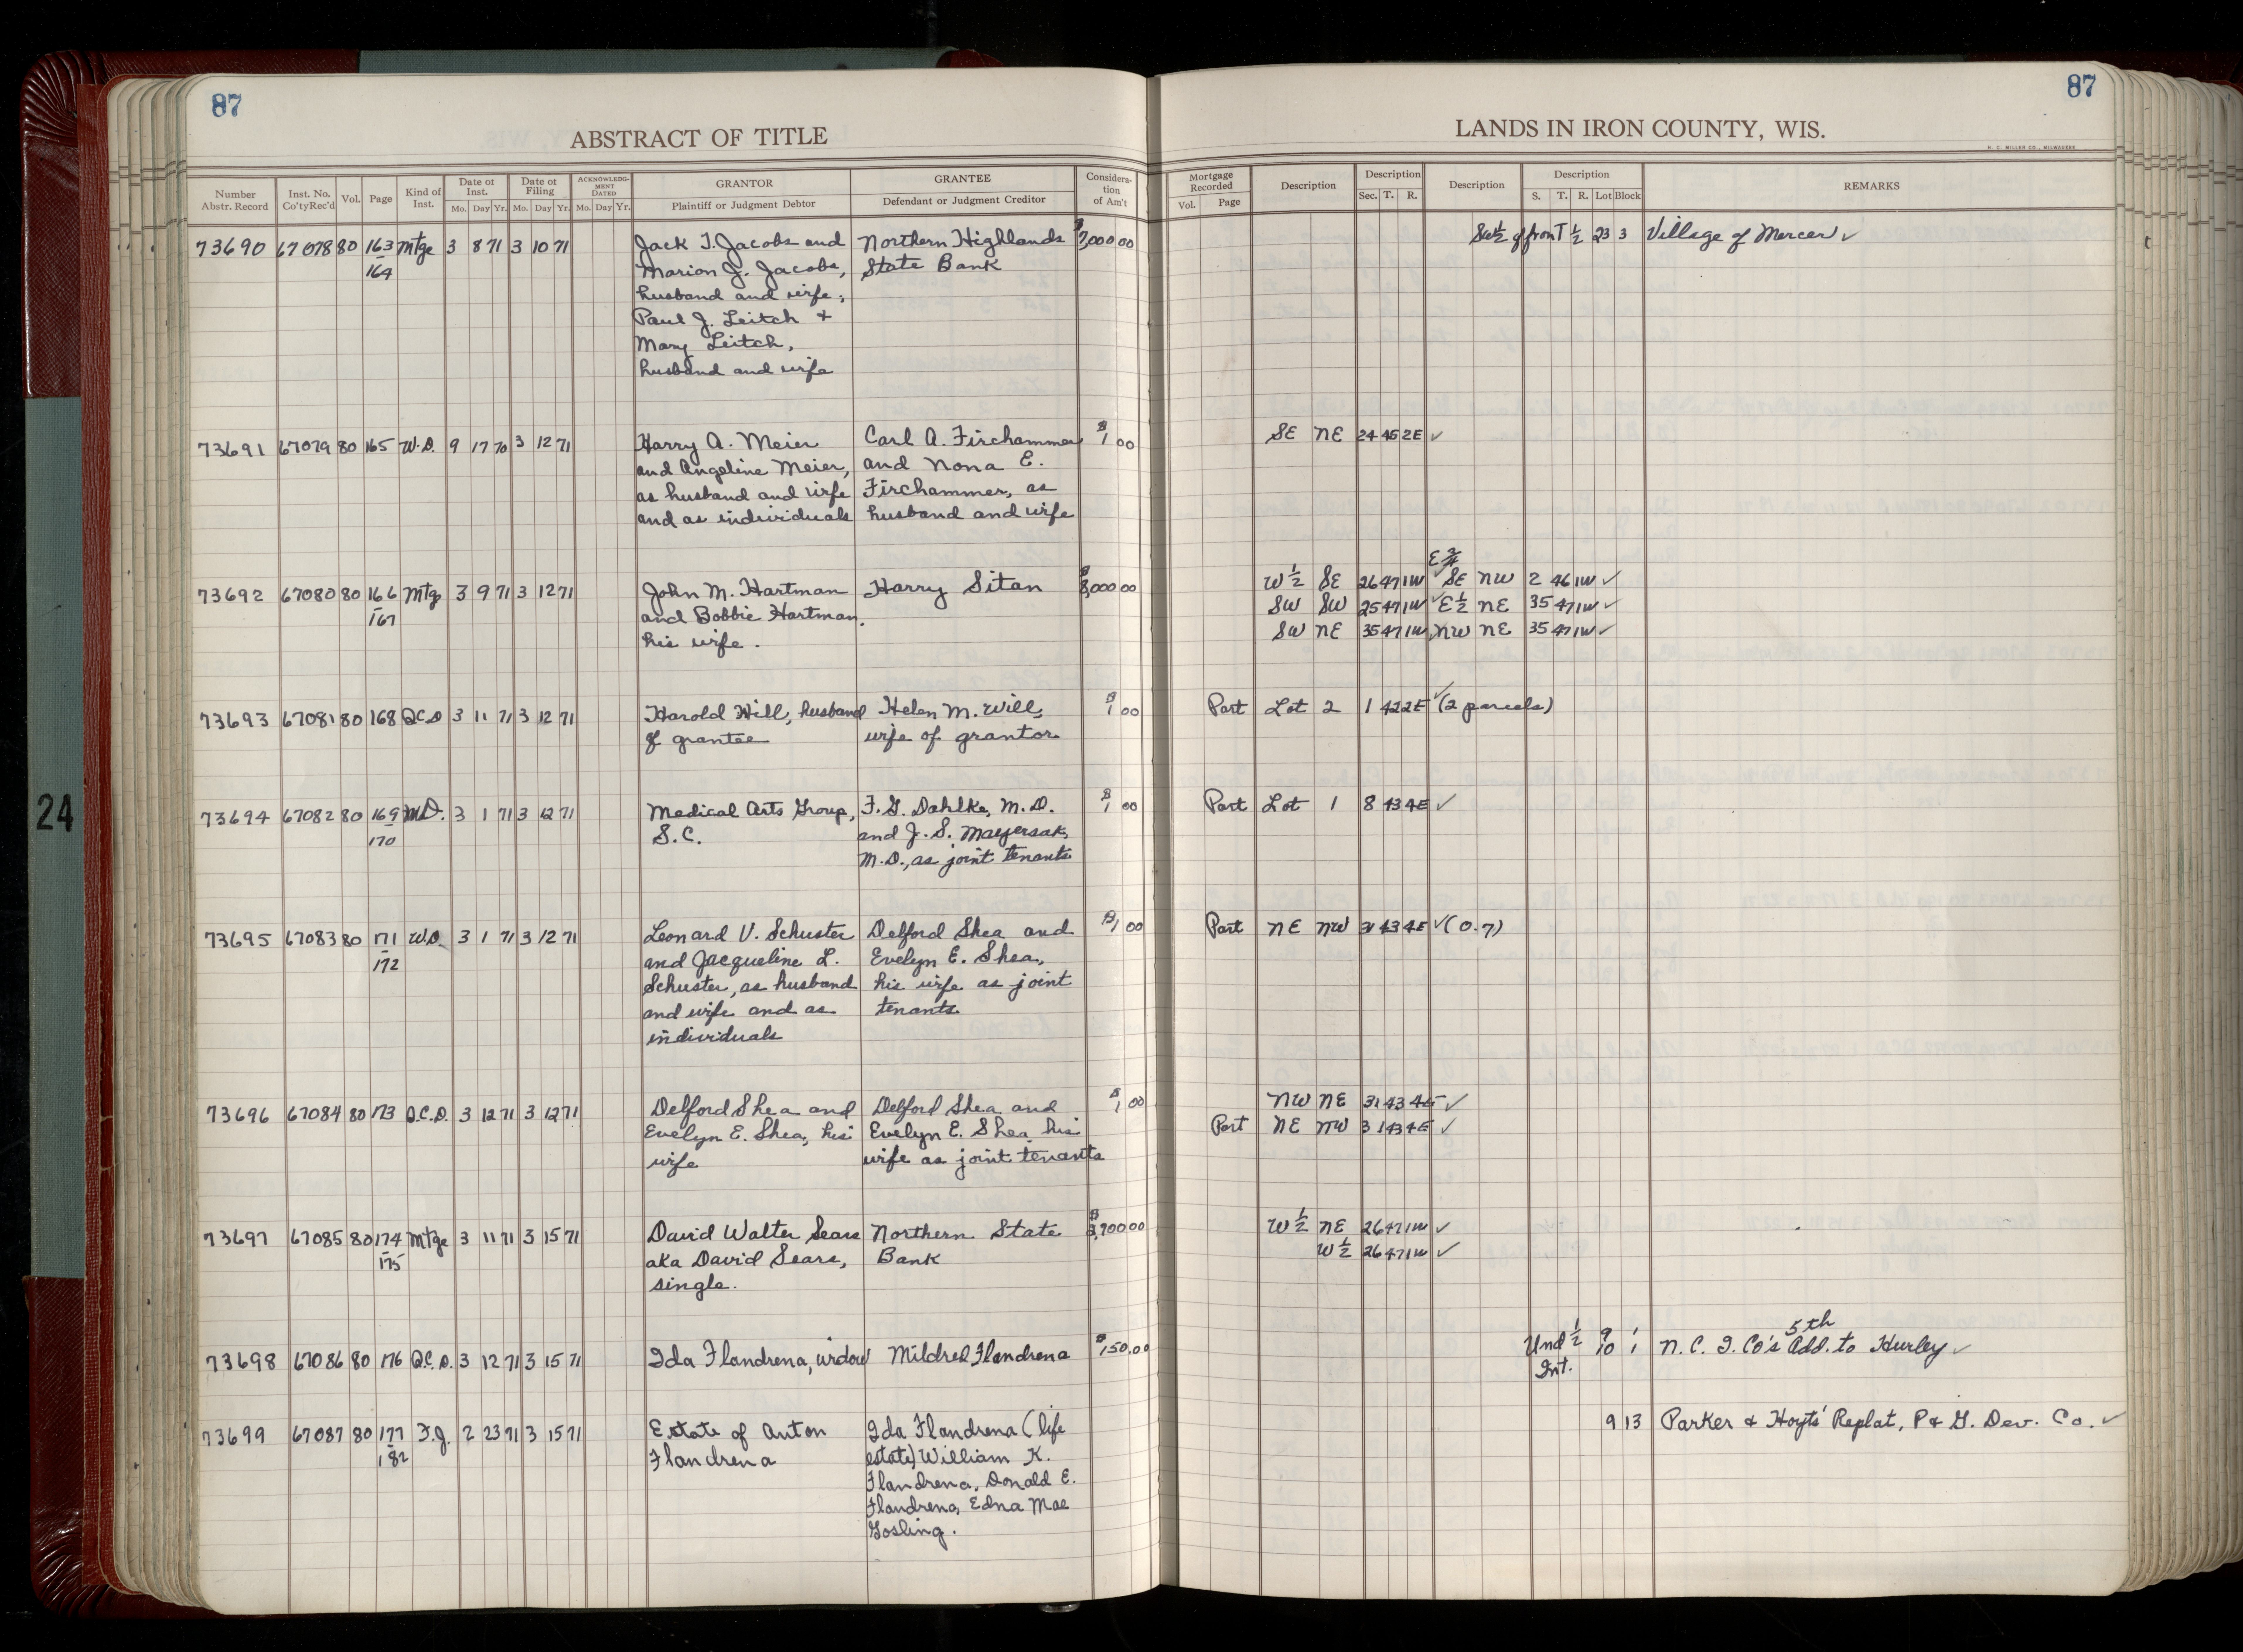 87
87
ABSTRACT OF TITLE
LANDS IN IRON COUNTY, WIS.
H. C. MILLER CO., MILWAUKEE
Number Abstr. Record Inst. No. Co'ty Rec'd Vol. Page Kind of Inst. Date of Inst. Mo. Day Yr. Date of Filing Mo. Day Yr. ACKNOWLEDGMENT DATED Mo. Day Yr. GRANTOR Plaintiff or Judgment Debtor GRANTEE Defendant or Judgment Creditor Consideration of Am't Mortgage Recorded Vol. Page Description Description Sec. T. R. Description Description S. T. R. Lot Block REMARKS
73690 67078 80 163 Mtge 3 8 71 3 10 71 Jack T. Jacobs and Northern Highlands $7,000 00 SW½ of fron T ½ 23 3 Village of Mercer ✓
164 Marion J. Jacobs, State Bank
husband and wife;
Paul J. Leitch +
Mary Leitch,
husband and wife
73691 67079 80 165 W.D. 9 17 70 3 12 71 Harry A. Meier Carl A. Firchammer $1 00 SE NE 24 45 2E ✓
and Angeline Meier, and Nona E.
as husband and wife Firchammer, as
and as individuals husband and wife
E¾
73692 67080 80 166 Mtg 3 9 71 3 12 71 John M. Hartman Harry Sitan $8,000 00 W½ SE 26 47 1W ✓ SE NW 2 46 1W ✓
167 and Bobbie Hartman, SW SW 25 47 1W ✓ E½ NE 35 47 1W ✓
his wife. SW NE 35 47 1W NW NE 35 47 1W ✓
73693 67081 80 168 Q.C.D 3 11 71 3 12 71 Harold Will, husband Helen M. Will, $1 00 Part Lot 2 1 42 2E ✓ (2 parcels)
of grantee wife of grantor
73694 67082 80 169 W.D. 3 1 71 3 12 71 Medical Arts Group, F. G. Dahlke, M.D. $1 00 Part Lot 1 8 43 4E ✓
170 S.C. and J. S. Mayersak,
M.D., as joint tenants
24
73695 67083 80 171 W.D. 3 1 71 3 12 71 Leonard V. Schuster Delford Shea and $1 00 Part NE NW 31 43 4E ✓ (0.7)
172 and Jacqueline L. Evelyn E. Shea,
Schuster, as husband his wife as joint
and wife and as tenants
individuals
73696 67084 80 173 Q.C.D. 3 12 71 3 12 71 Delford Shea and Delford Shea and $1 00 NW NE 31 43 4E ✓
Evelyn E. Shea, his Evelyn E. Shea his Part NE NW 31 43 4E ✓
wife wife as joint tenants
73697 67085 80 174 Mtge 3 11 71 3 15 71 David Walter Sears Northern State $3,900 00 W½ NE 26 47 1W ✓
175 aka David Sears, Bank W½ 26 47 1W ✓
single.
73698 67086 80 176 Q.C.D. 3 12 71 3 15 71 Ida Flandrena, widow Mildred Flandrena $150.00 Und ½ 9 1 N.C.I. Co's 5th Add. to Hurley ✓
Int. 10 1
73699 67087 80 177 F.J. 2 23 71 3 15 71 Estate of Anton Ida Flandrena (life 9 13 Parker & Hoyts' Replat, P & G. Dev. Co. ✓
182 Flandrena estate) William K.
Flandrena, Donald E.
Flandrena, Edna Mae
Gosling.